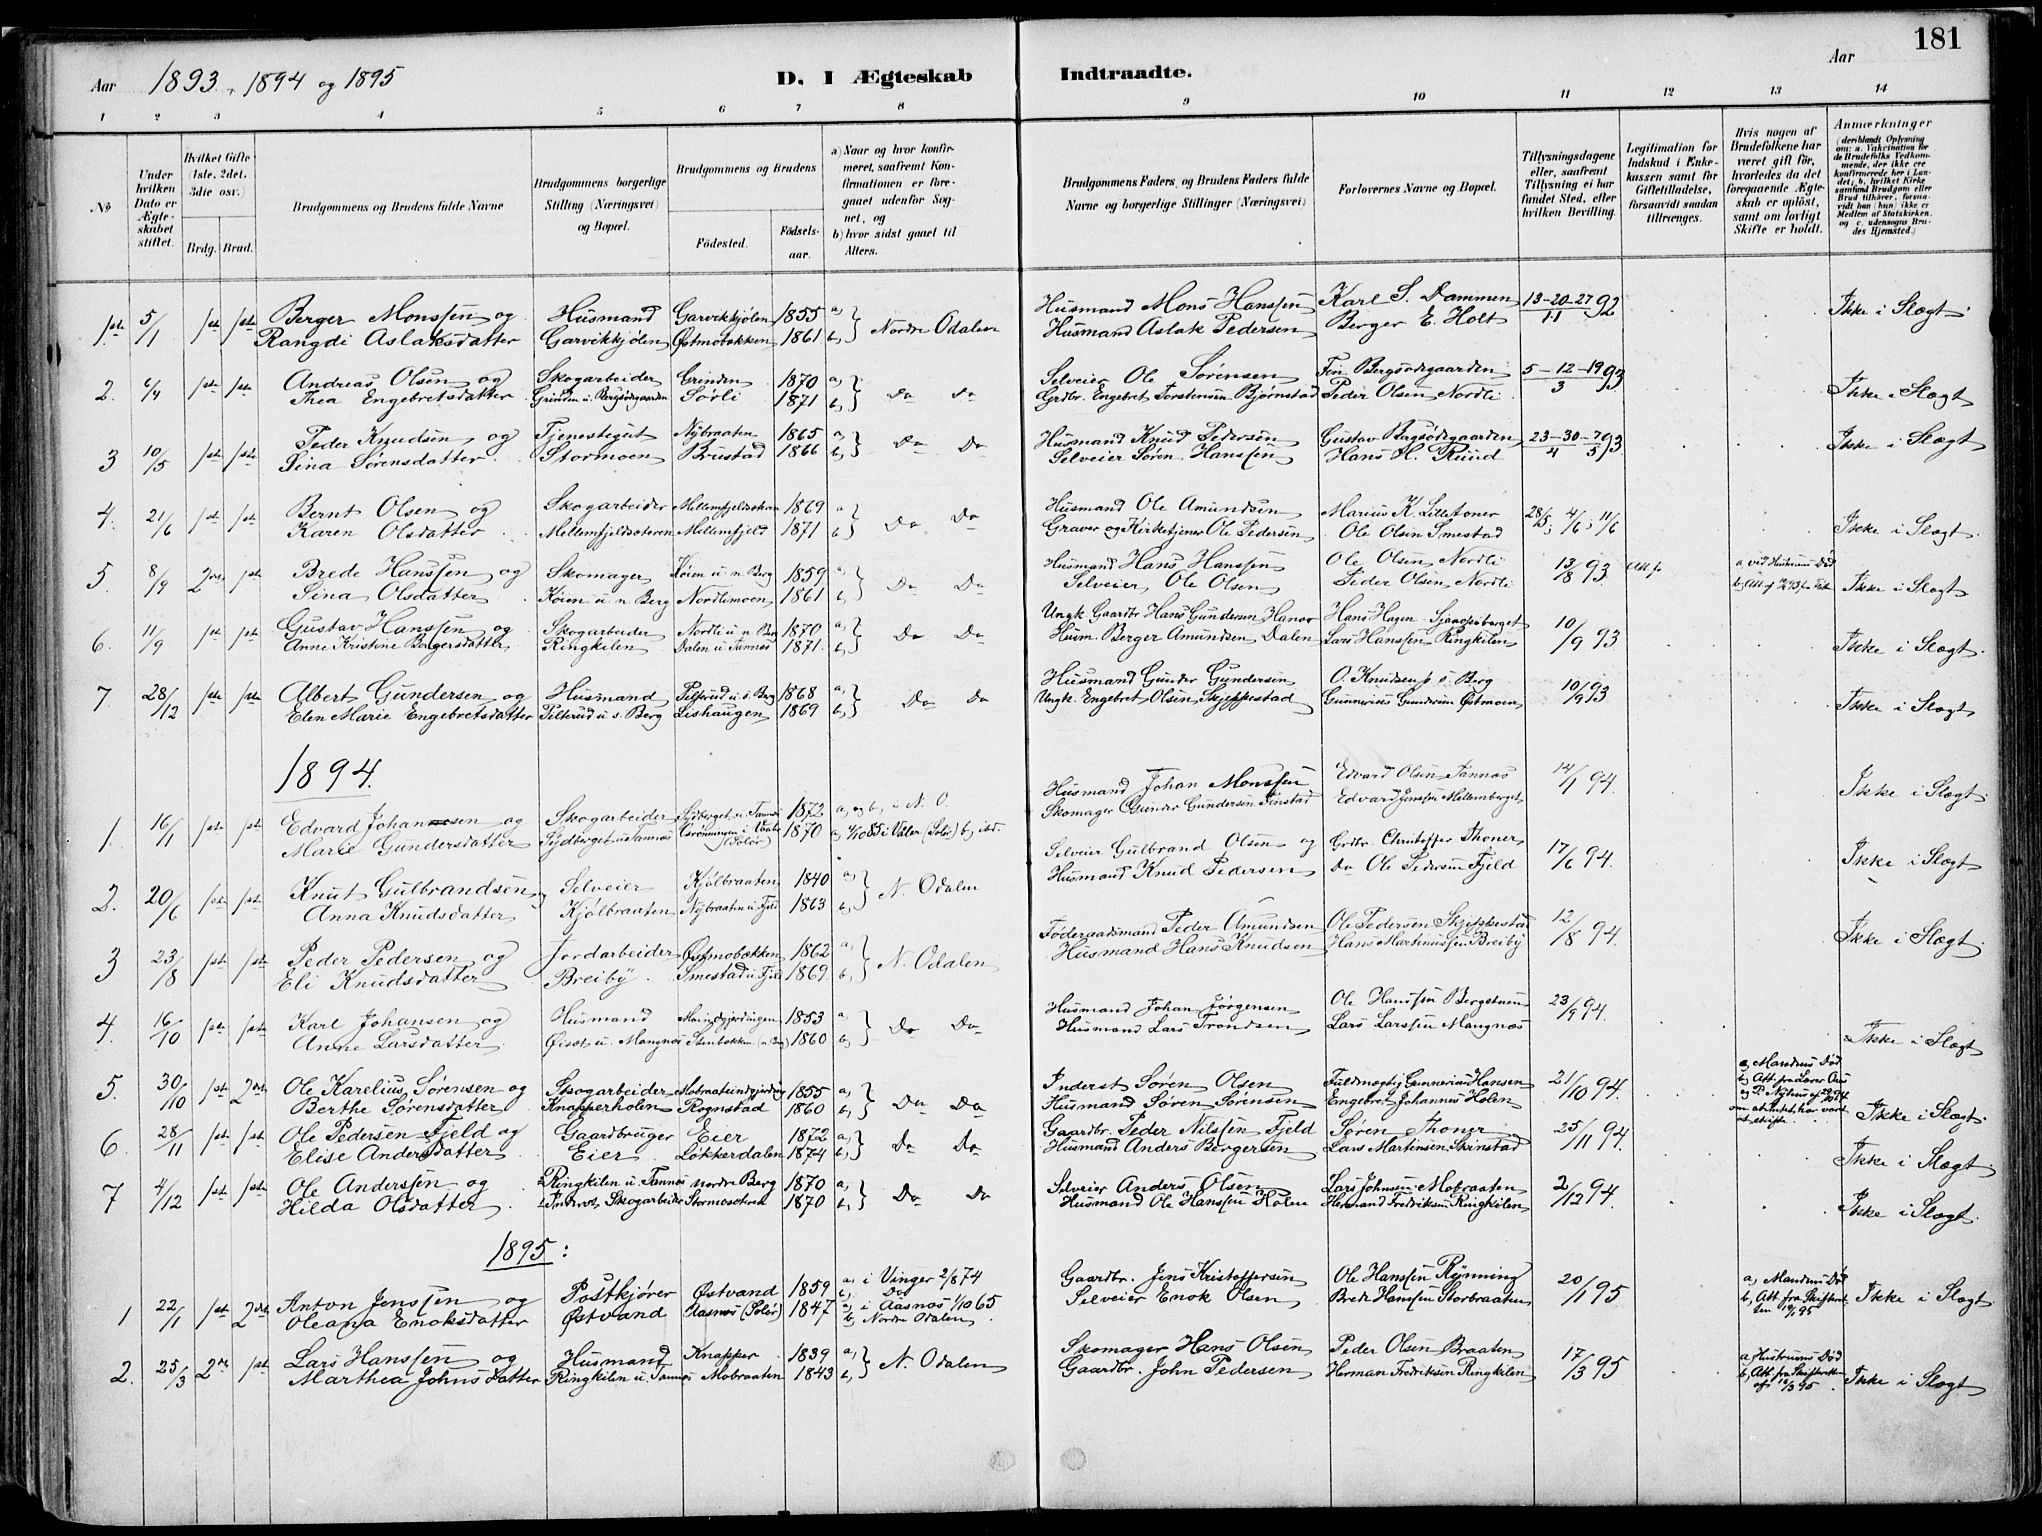 181
Aar 1893, 1894 og 1895
D. I Ægteskab Indtraadte.
Aar
1 2 3 4 5 6 7 8 9 10 11 12 13 14
No
Under hvilken Dato er Ægteskabet stiftet.
Hvilket Gifte (1ste, 2det, 3die osv.)
Brdg. Brud.
Brudgommens og Brudens fulde Navne
Brudgommens borgerlige Stilling (Næringsvei) og Bopæl.
Brudgommens og Brudens
Fødested.
Fødselsaar.
a) Naar og hvor konfirmeret, saafremt Konfirmationen er foregaaet udenfor Sognet, og
b) hvor sidst gaaet til Alters.
Brudgommens Faders og Brudens Faders fulde Navne og borgerlige Stillinger (Næringsvei)
Forlovernes Navne og Bopæl.
Tillysningsdagene eller, saafremt Tillysning ei har fundet Sted, efter hvilken Bevilling.
Legitimation for Indskud i Enkekassen samt for Giftetilladelse, forsaavidt saadan tiltrænges.
Hvis nogen af Brudefolkene har været gift før, hvorledes da det foregaaende Ægteskab er opløst, samt om lovligt Skifte er holdt.
Anmærkninger (deriblandt Oplysning om: a. Vakcination for de Brudefolks Vedkommende, der ikke ere konfirmerede her i Landet; b. hvilket Kirkesamfund Brudgom eller Brud tilhører, forsaavidt han (hun) ikke er Medlem af Statskirken, og c. udensogns Brudes Hjemsted.)
1. 5/1 1ste 1ste Berger Monssen og Husmand Garvikkjølen 1855 a) Nordre Odalen Husmand Mons Hanssen Karl S. Dammen 13-20-27/11 92 Ikke i Slægt
Rangdi Aslaksdatter Garvikkjølen Østmobækken 1861 b) Husmand Aslak Pedersen Berger E. Holt
2. 6/4 1ste 1ste Andreas Olsen og Skogarbeider Grinden 1870 a) Do Do Selveier Ole Sørensen Fin Bergsødegaarden 5-12-19/3 93 Ikke i Slægt
Thea Engebretsdatter Grinden u. Bergsødegaarden Sørli 1871 b) Grdbr. Engebret Torstensen Bjørnstad Peder Olsen Nordli
3 10/5 1ste 1ste Peder Knudsen og Tjenestegut Nybraaten 1865 a) Do Do Husmand Knud Pedersen Gustav Bergsødegaarden 23-30-7/4 5 93 Ikke i Slægt
Sina Sørensdatter Stormoen Brustad 1866 b) Selveier Søren Hanssen Hans H. Ruud
4. 21/6 1ste 1ste Bernt Olsen og Skogarbeider 1869 a) Do Do Husmand Ole Amundsen Marius K. Lilletoner 28/5, 4/6, 11/6 Ikke i Slægt
Karen Olsdatter Mellemfjeldsæteren Mellemfjeld 1871 b) Graver og Kirketjener Ole Pedersen Ole Olsen Smestad
5 8/9 2det 1ste Brede Hanssen og Skomager Køien u. n. Berg 1859 a) Do Do Husmand Hans Hanssen Ole Olsen Nordli 13/8 93 a, ved Hustruens Død Ikke i Slægt
Sina Olsdatter Køien u n Berg Nordlimoen 1861 b) Selveier Ole Olsen Peder Olsen Nordli
6. 11/9 1ste 1ste Gustav Hanssen og Skogarbeider Nordli u n Berg 1870 a) Do Do Ungk. Gaardbr Hans Gundersen Hanor Hans Hagen 10/9 93 Ikke i Slægt.
Anne Kristine Bergersdatter Ringkilen Dalen u Sannes 1871 b) Husm. Berger Amundsen Dalen Lars Hanssen Ringkilen
7 28/12 1ste 1ste Albert Gundersen og Husmand Pilterud u. s. Berg 1868 a) Do Do Husmand Gunder Gundersen O. Knudsen p s Berg 10/9 93 Ikke i Slægt
Elen Marie Engebretsdatter Pilterud u s. Berg Lishaugen 1869 b) Ungk. Engebret Olsen Skjeppestad Gunnerius Gundersen Østmoen
1894.
1. 16/1 1ste 1ste Edvard Johansen og Skogarbeider Sydberget u. Sannes 1872 a, og b, i N. O. Husmand Johan Monssen Edvard Olsen Sannes 14/1 94. Ikke i Slægt.
Marie Gundersdatter Sydberget u Sannes 1870 a) 1/10 85 i Vaaler (Solør) b, ibd. Skomager Gunder Gundersen Finstad Edvard Jenssen Mellemberget
2. 20/6 1ste 1ste Knut Gulbrandsen og Selveier Kjølbraaten 1840 a) N. Odalen Selveier Gulbrand Olsen og Grdbr. Christoffer Thoner 17/6 94. Ikke i Slægt
Anna Knudsdatter Kjølbraaten Nybraaten u. Fjeld 1863 b) Husmand Knud Pedersen Do Ole Pedersen Fjeld
3 23/8 1ste 1ste Peder Pedersen og Jordarbeider Østmobækken 1862 a) N. Odalen Føderaadsmand Peder Amundsen Ole Pedersen Skjeppestad 12/8 94. Ikke i Slægt.
Eli Knudsdatter Breiby Smestad u. Fjeld 1869 b) Husmand Hans Knudsen Hans Martinussen Breiby
4. 16/10 1ste 1ste Karl Johansen og Husmand 1853 a) Do Do Husmand Johan Jørgensen Ole Hanssen Bergetuen 23/9 94. Ikke i Slægt
Anne Larsdatter Øiset u. Mangnæs Stenbækken 1860 b) Husmand Lars Trondsen Lars Larssen Mangnæs
5. 30/10 1ste 2det Ole Karelius Sørensen og Skogarbeider 1855 a) Do Do Inderst Søren Olsen Fuldmægtig Gunnerius Hansen 21/10 94. a, Mandens Død b, Att fra Ikke i Slægt.
Berthe Sørensdatter Knapperholen Rognstad 1860 b) Husmand Søren Sørensen Engebret Johannes Holen
6. 28/11 1ste 1ste Ole Pedersen Fjeld og Gaardbruger Eier 1872 a) Do Do Gaardbr. Peder Nilssen Fjeld Søren Thoner 25/11 94. Ikke i Slægt
Elise Andersdatter Eier Løkkerdalen 1874 b) Husmand Anders Bergersen Lars Martinsen Skinstad
7 4/12 1ste 1ste Ole Anderssen og Ringkilen u. Sannes nordre Berg 1870 a) Do Do Selveier Anders Olsen Lars Johnsen Mobraaten 2/12 94. Ikke i Slægt.
Hilda Olsdatter Inderst, Skogarbeider Stormosæteren 1870 b) Husmand Ole Hanssen Holen Hermand Fredriksen Ringkilen
1895:
1 22/1 1ste 2det Anton Jenssen og Postkjører Østvand 1859 a) i Vinger 2/8 74 b) Do Gaardbr. Jens Kristoffersen Ole Hanssen Rynning 20/1 95 a, Mandens Død b, Att. fra Skifteretten 19/1 95 Ikke i Slægt
Oleana Enoksdatter Østvand Aasnæs (Solør) 1847 a) i Aasnæs 1/10 65 b) Nordre Odalen Selveier Enok Olsen Brede Hanssen Storbraaten
2. 25/3 2det 1ste Lars Hanssen og Husmand Knapper 1839 a) N. Odalen Skomager Hans Olsen Peder Olsen Braaten 17/3 95 a, Hustruens Død b, Att. fra Skifteretten af 16/3 95 Ikke i Slægt
Marthea Johnsdatter Ringkilen u. Sannes Mobraaten 1843 b) Gaardbr. John Pedersen Herman Fredriksen Ringkilen